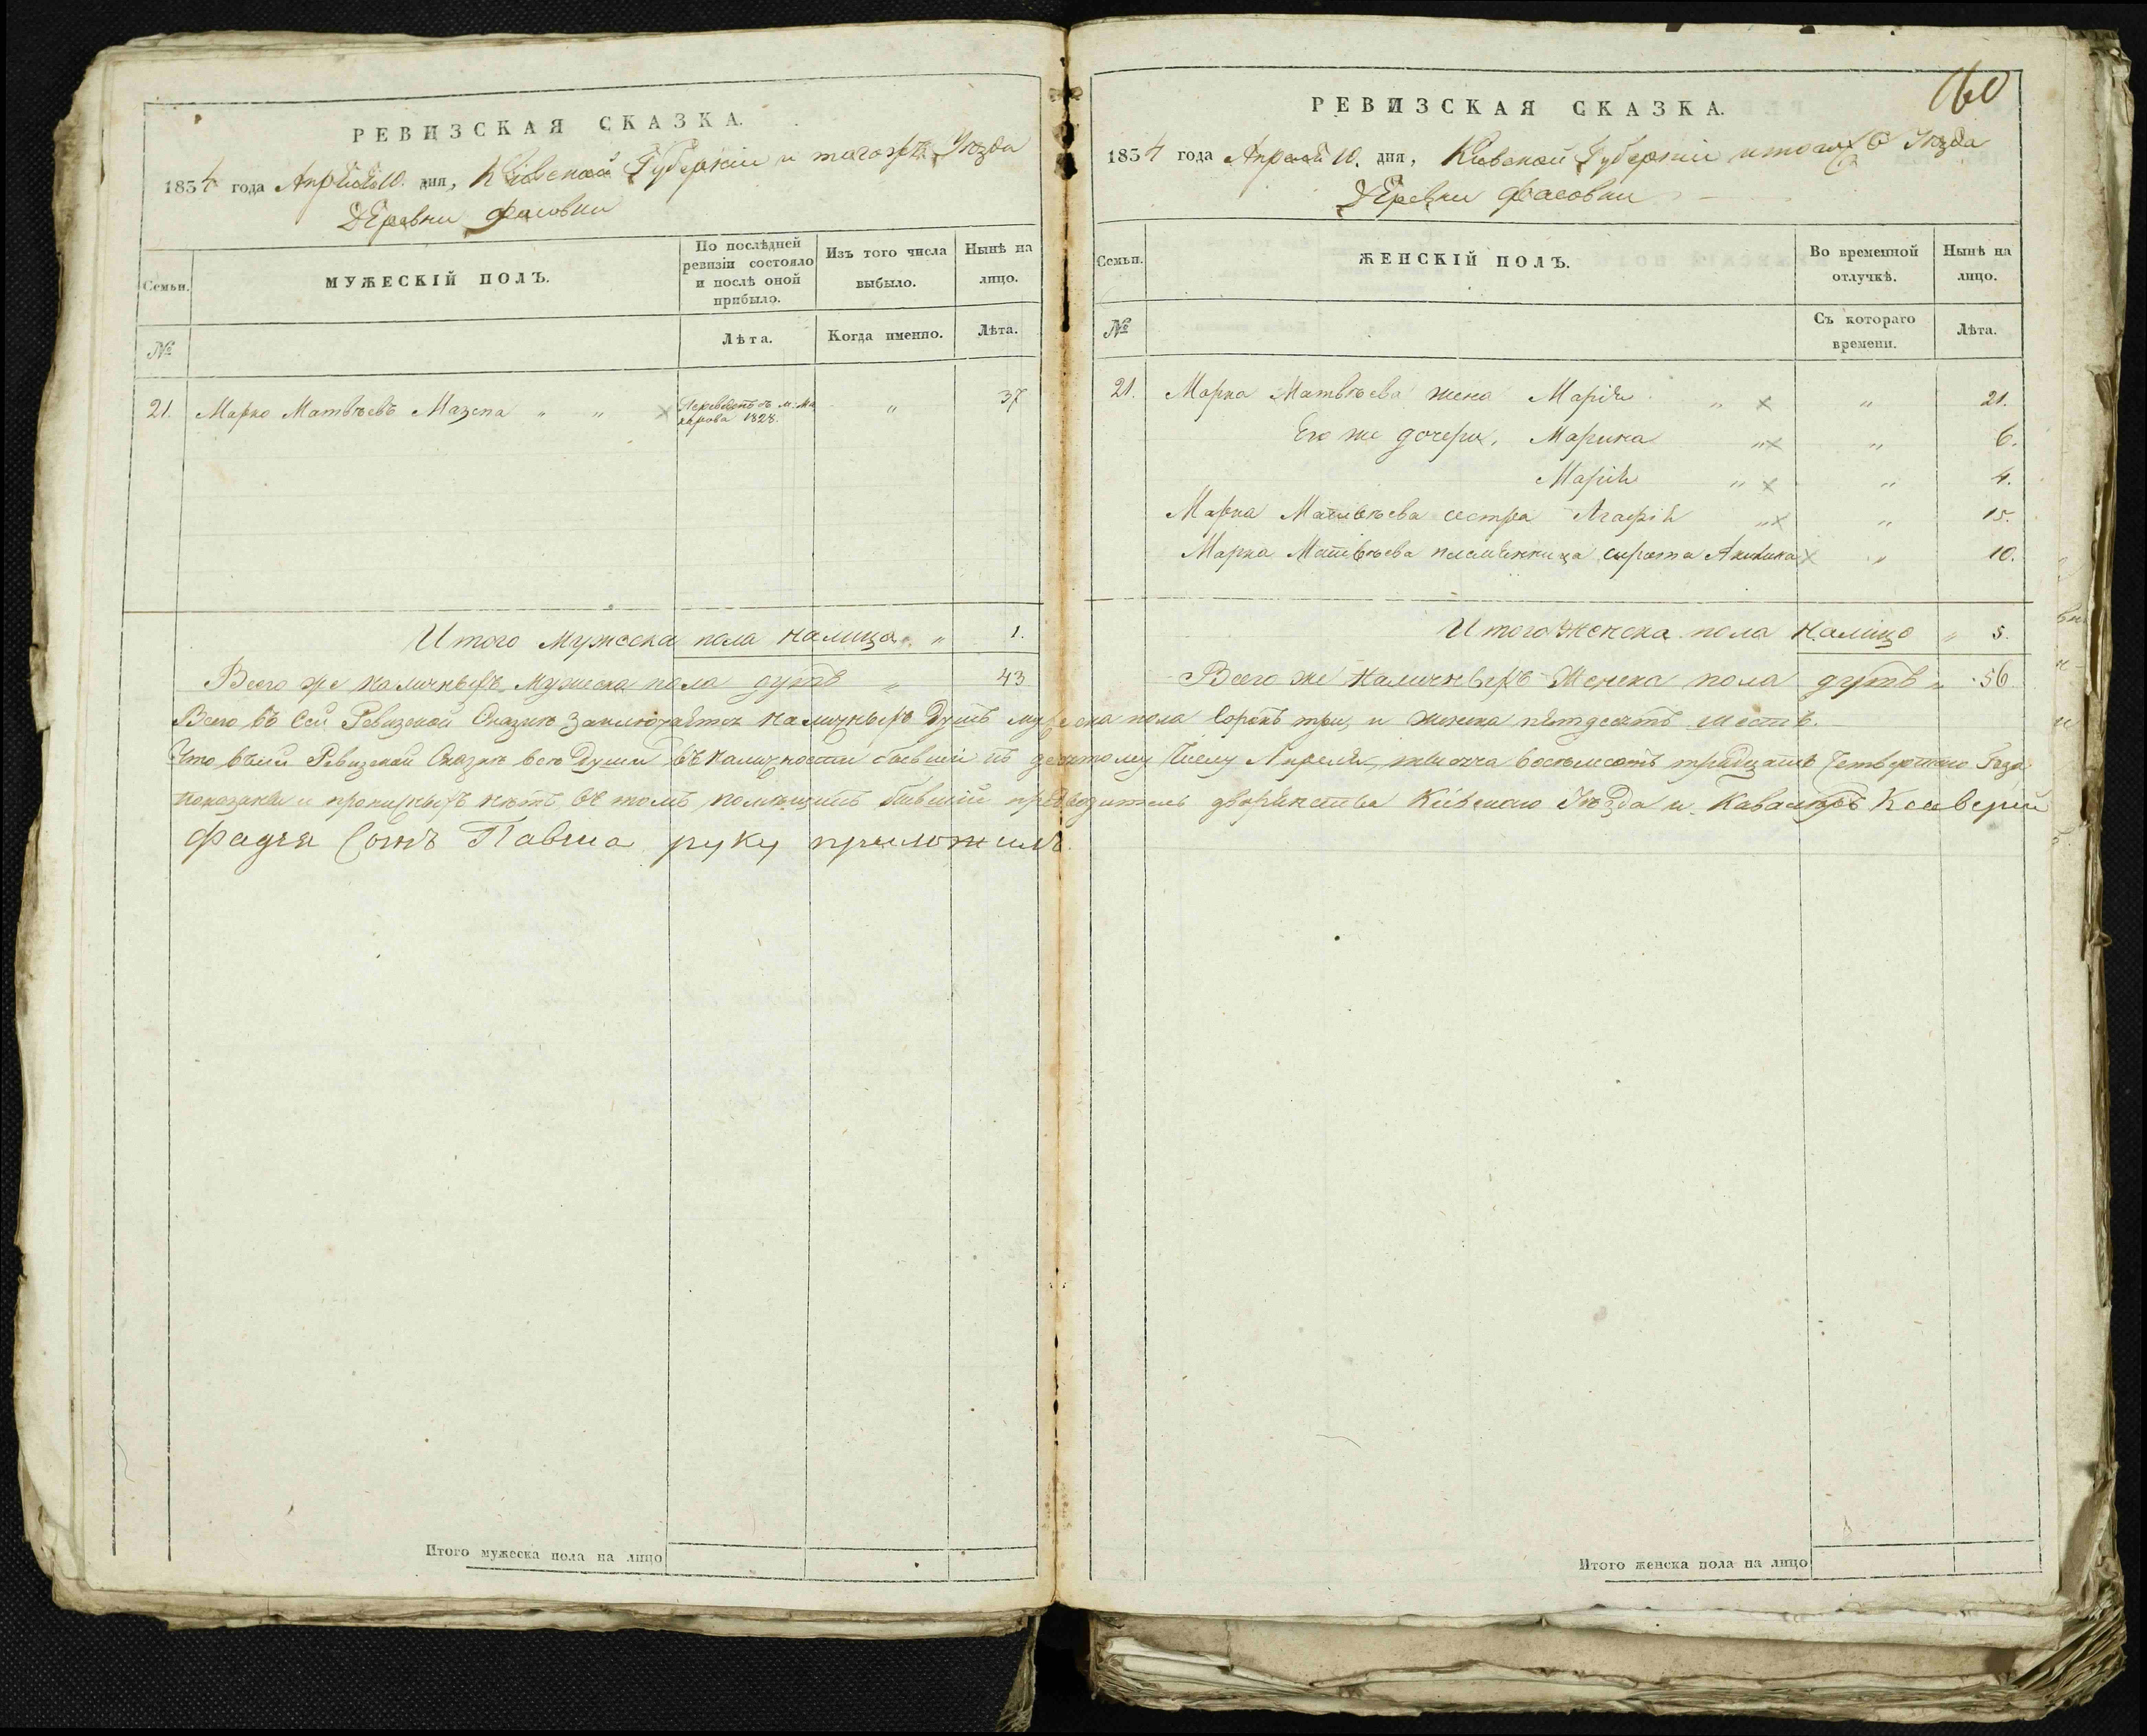 РЕВИЗСКАЯ СКАЗКА.
1834 года Апреля 10. дня, Кіевской Губерніи и тогожъ Уезда
Деревни Фасовки
Семьи.
МУЖЕСКІЙ ПОЛЪ.
По послѣдней ревизіи состояло и послѣ оной прибыло.
Изъ того числа выбыло.
Нынѣ на лицо.
№
Лѣта.
Когда именно.
Лѣта.
21. Марко Матвѣевъ Мазепа " " × Переведенъ съ м. Ма " 37
карова 1828.
Итого мужеска пола налицо " 1.
Всего же наличныхъ мужеска пола душъ " 43
160
РЕВИЗСКАЯ СКАЗКА.
1834 года Апреля 10. дня, Кіевской Губерніи и тогожъ Уезда
Деревни Фасовки
Семьи.
ЖЕНСКІЙ ПОЛЪ.
Во временной отлучкѣ.
Нынѣ на лицо.
№
Съ котораго времени.
Лѣта.
21. Марка Матвѣева жена Марія " × " 21.
Его же дочери, Марина " × " 6.
Марія " × " 4.
Марка Матвѣева сестра Агафія " × " 15.
Марка Матвѣева племянница сирота × " 10.
Итого женска пола налицо " 5.
Всего же наличныхъ женска пола душъ " 56
Всего въ сей Ревизской Сказкѣ заключается наличныхъ душъ мужеска пола сорокъ три, и женска пятдесятъ шесть.
Что въ сей Ревизской Сказкѣ всѣ души въ наличности бывшіи къ десятому числу Апреля тысяча восемьсотъ тридцать четвертого Года
показаны и прописныхъ нѣтъ въ томъ помѣщикъ бывшій предводитель дворянства Кіевского Уезда и Кавалеръ Ксаверій
Фадея Сынъ Павша руку приложилъ.
Итого мужеска пола на лицо
Итого женска пола на лицо